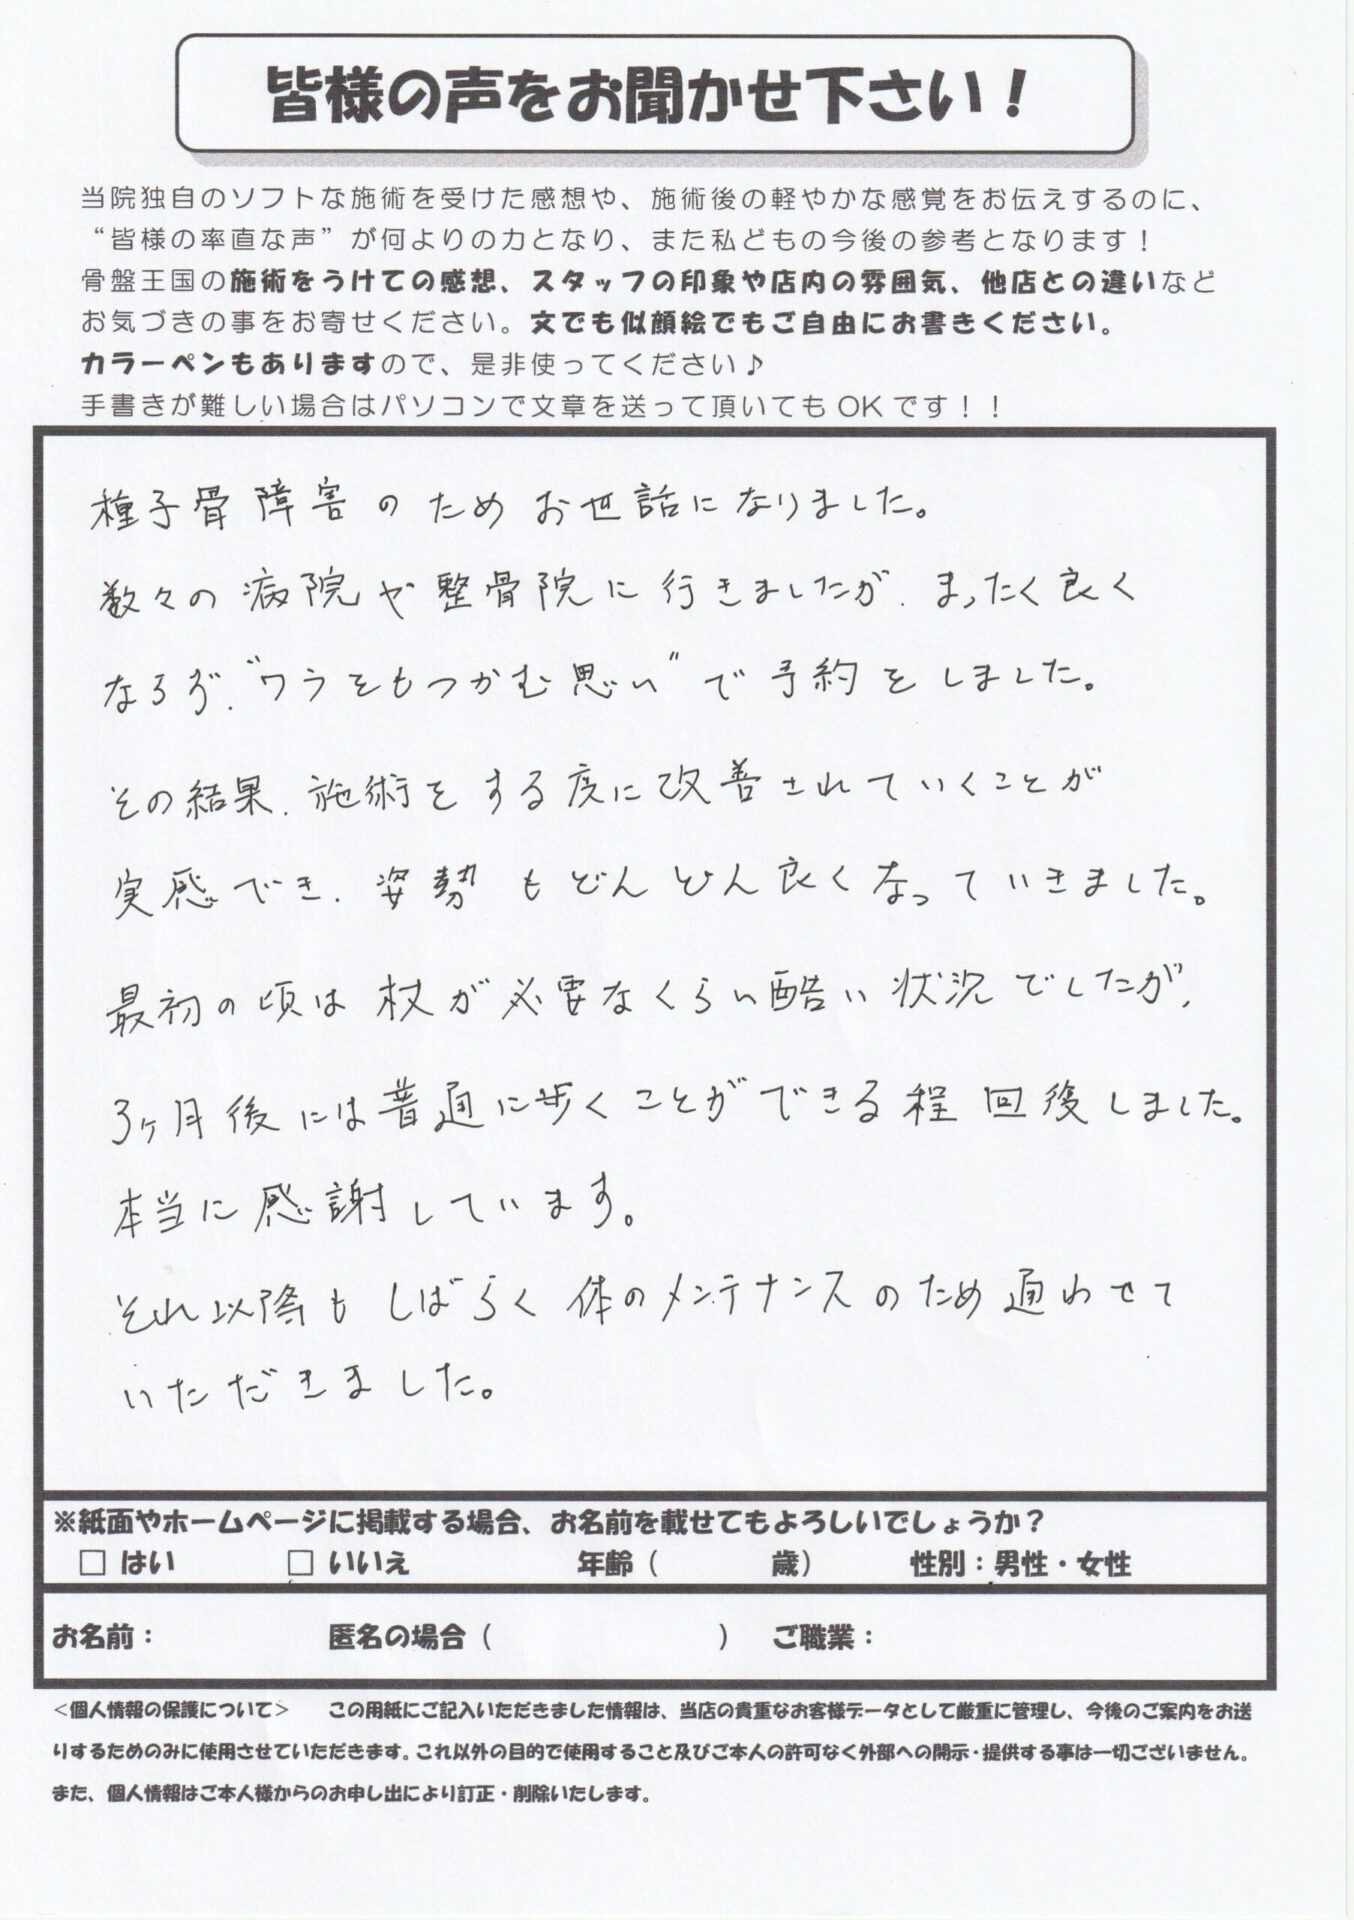 皆様の声をお聞かせ下さい！
当院独自のソフトな施術を受けた感想や、施術後の軽やかな感覚をお伝えするのに、
“皆様の率直な声”が何よりの力となり、また私どもの今後の参考となります！
骨盤王国の施術をうけての感想、スタッフの印象や店内の雰囲気、他店との違いなど
お気づきの事をお寄せください。文でも似顔絵でもご自由にお書きください。
カラーペンもありますので、是非使ってください♪
手書きが難しい場合はパソコンで文章を送って頂いてもOKです！！
種子骨障害のためお世話になりました。
数々の病院や整骨院に行きましたが、まったく良く
ならず、“ワラをもつかむ思い”で予約をしました。
その結果、施術をする度に改善されていくことが
実感でき、姿勢もどんどん良くなっていきました。
最初の頃は杖が必要なくらい酷い状況でしたが、
3ヶ月後には普通に歩くことができる程回復しました。
本当に感謝しています。
それ以降もしばらく体のメンテナンスのため通わせて
いただきました。
※紙面やホームページに掲載する場合、お名前を載せてもよろしいでしょうか？
□ はい □ いいえ 年齢（ 歳） 性別：男性・女性
お名前： 匿名の場合（ ） ご職業：
＜個人情報の保護について＞ この用紙にご記入いただきました情報は、当店の貴重なお客様データとして厳重に管理し、今後のご案内をお送
りするためのみに使用させていただきます。これ以外の目的で使用すること及びご本人の許可なく外部への開示・提供する事は一切ございません。
また、個人情報はご本人様からのお申し出により訂正・削除いたします。